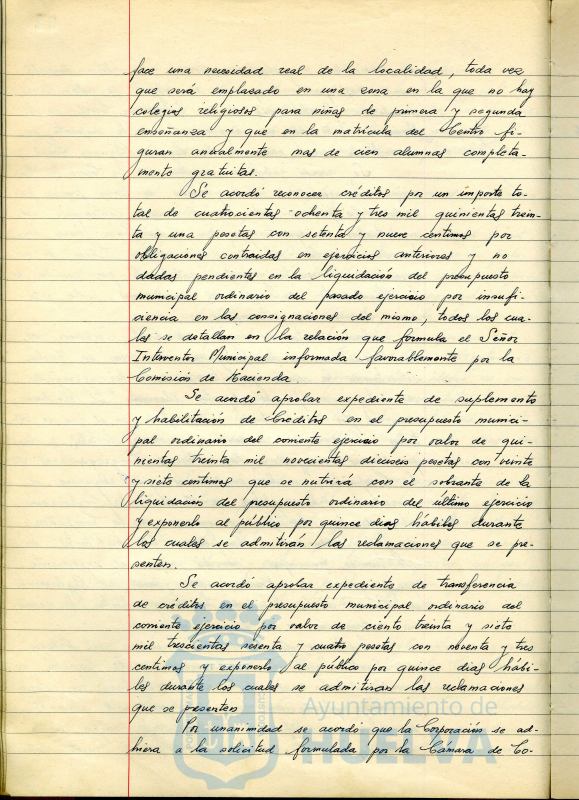 face una necesidad real de la localidad, toda vez
que será emplazado en una zona en la que no hay
colegios religiosos para niñas de primera y segunda
enseñanza y que en la matrícula del Centro fi-
guran anualmente mas de cien alumnas completa-
mente gratuitas.
Se acordó reconocer créditos por un importe to-
tal de cuatrocientas ochenta y tres mil quinientas trein-
ta y una pesetas con setenta y nueve centimos por
obligaciones contraidas en ejercicios anteriores y no
dadas pendientes en la liquidación del presupuesto
municipal ordinario del pasado ejercicio por insufi-
ciencia en las consignaciones del mismo, todos los cua-
les se detallan en la relación que formula el Señor
Interventor Municipal informada favorablemente por la
Comisión de Hacienda.
Se acordó aprobar expediente de suplemento
y habilitación de Créditos en el presupuesto munici-
pal ordinario del corriente ejercicio por valor de qui-
nientas treinta mil novecientas dieciseis pesetas con veinte
y siete centimos que se nutrirá con el sobrante de la
liquidación del presupuesto ordinario del último ejercicio
y exponerlo al público por quince dias hábiles durante
los cuales se admitirán las reclamaciones que se pre-
senten.
Se acordó aprobar expediente de transferencia
de créditos en el presupuesto municipal ordinario del
corriente ejercicio por valor de ciento treinta y siete
mil trescientas sesenta y cuatro pesetas con noventa y tres
centimos y exponerlo al público por quince dias hábi-
les durante los cuales se admitiran las reclamaciones
que se presenten
Por unanimidad se acordó que la Corporación se ad-
hiera a la solicitud formulada por la Cámara de Co-
Ayuntamiento de
HUELVA